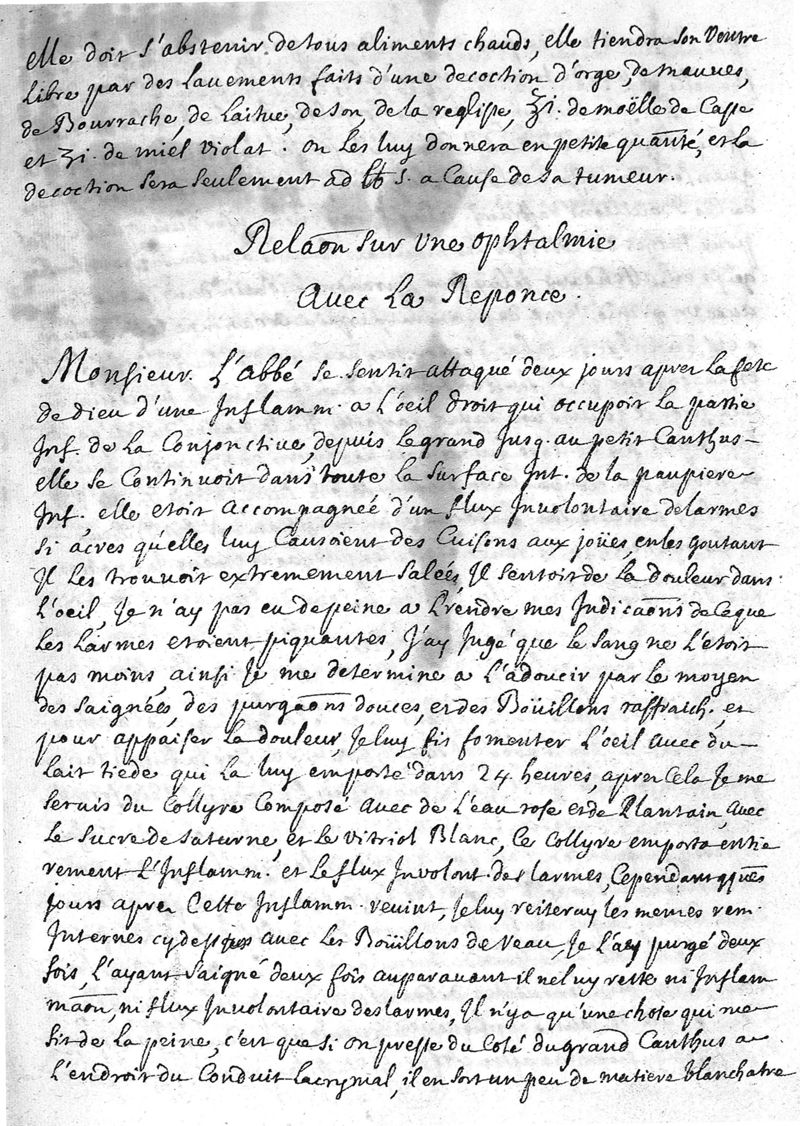 elle doit s'abstenir de tous aliments chauds, elle tiendra son Ventre
Libre par des Lavements faits d'une decoction d'orge, de mauves,
de Bourrache, de Laitue, de son, de la reglisse, ʒi. de moëlle de Casse
et ʒi. de miel violat. on Les luy donnera en petite quantité, et La
decoction sera seulement ad ℔ s. a Cause de sa tumeur.
Relaõn sur une ophtalmie
Avec La Reponce.
Monsieur L'abbé se sentit attaqué deux jours apres La fete
de dieu d'une Inflamm. a L'oeil droit qui occupoit La partie
Inf. de La Conjonctive, depuis Le grand Jusq. au petit Canthus
elle se Continuoit dans toute La surface Int. de la paupiere
Inf. elle etoit accompagnée d'un flux Involontaire de larmes
si acres qu'elles luy Causoient des Cuisons aux joües, en les goutant
Il Les trouvoit extremement salées, Il sentoit de La douleur dans
L'oeil, Je n'ay pas eu de peine a Prendre mes Indicaõns de Ceque
Les Larmes etoient piquantes, J'ay Jugé que Le sang ne L'étoit
pas moins, ainsi Je me determine a L'adoucir par Le moyen
des saignées, des purgaõns douces, et des Boüillons raffraich. et
pour appaiser La douleur, Je luy fis fomenter L'oeil avec du
Lait tiede qui La luy emporte dans 24 heures, apres Cela Je me
servis du Collyre Composé avec de L'eau rose et de Plantain, avec
Le sucre de saturne, et Le Vitriol Blanc, Ce Collyre emporta entie
rement L'Inflamm. et Le flux Involont. des larmes, Cependant qq̃ues
jours apres Cette Inflamm. revint, Je luy reiteray les memes rem.
Internes cy dessus avec Les Boüillons de Veau, Je L'ay purgé deux
fois, L'ayant saigné deux fois auparavant il ne luy reste ni Inflam
maõn, ni flux Involontaire des larmes, Il n'y a qu'une chose qui me
fit de La peine, c'est que si on presse du Coté du grand Canthus a
L'endroit du Conduit Lacrymal, il en sort un peu de matiere blanchatre